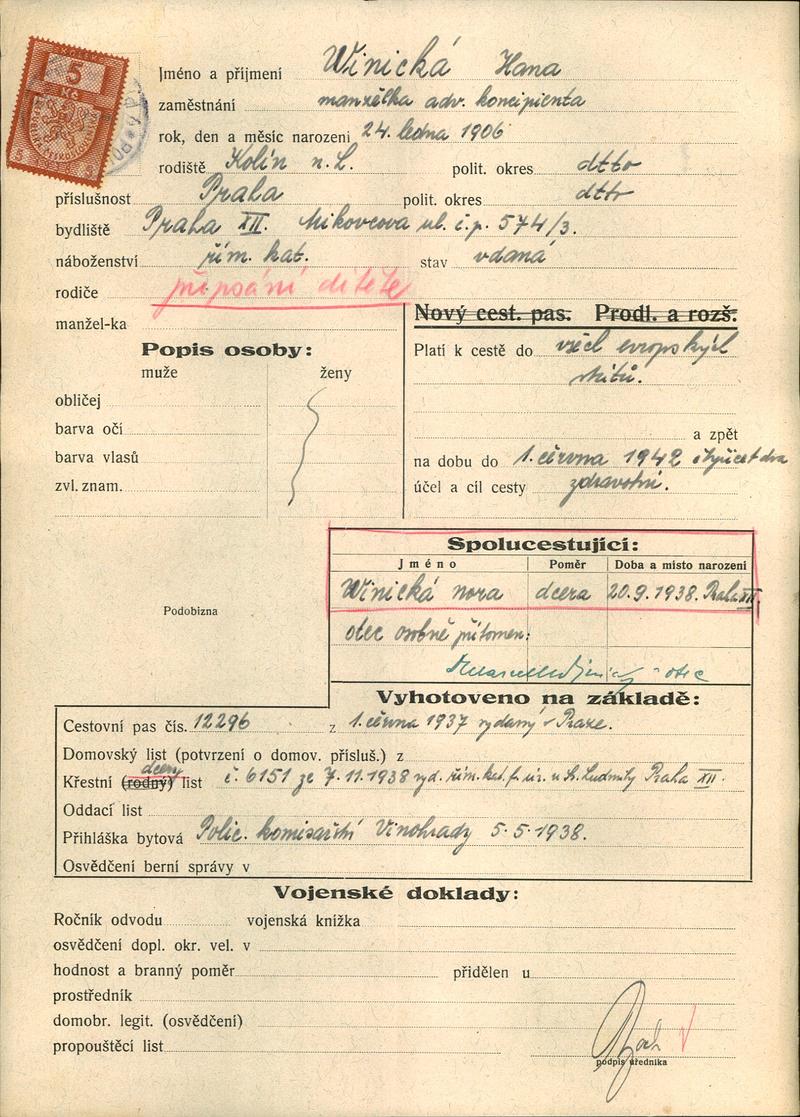 5
Kč
Jméno a příjmení Winická Hana
zaměstnání manželka adv. koncipienta
rok, den a měsíc narozeni 24. ledna 1906
rodiště Kolín n.L. polit. okres dtto
příslušnost Praha polit. okres dtto
bydliště Praha XII. Mikovcova ul. č.p. 574/3.
náboženství řím. kat. stav vdaná
rodiče připsání dítěte
manžel-ka
Nový cest. pas. Prodl. a rozš.
Popis osoby:
muže ženy
obličej
barva očí
barva vlasů
zvl. znam.
Platí k cestě do všech evropských
států.
a zpět
na dobu do 1. června 1942 čtyřicet dva
účel a cíl cesty zdravotní.
Podobizna
Spolucestující:
Jméno Poměr Doba a místo narozeni
Winická Nora dcera 20.9.1938. Praha XII.
otec osobně přítomen:
otec
Vyhotoveno na základě:
Cestovní pas čís. 12296 z 1. června 1937 vydaný v Praze.
Domovský list (potvrzení o domov. přísluš.) z
dcery
Křestní (rodný) list č. 6151 ze 7.11.1938 vyd. řím. kat. f. úř. u Sv. Ludmily Praha XII.
Oddací list
Přihláška bytová Polic. komisařství Vinohrady 5.5.1938.
Osvědčení berní správy v
Vojenské doklady:
Ročník odvodu vojenská knížka
osvědčení dopl. okr. vel. v
hodnost a branný poměr přidělen u
prostředník
domobr. legit. (osvědčení)
propouštěcí list
podpis úředníka